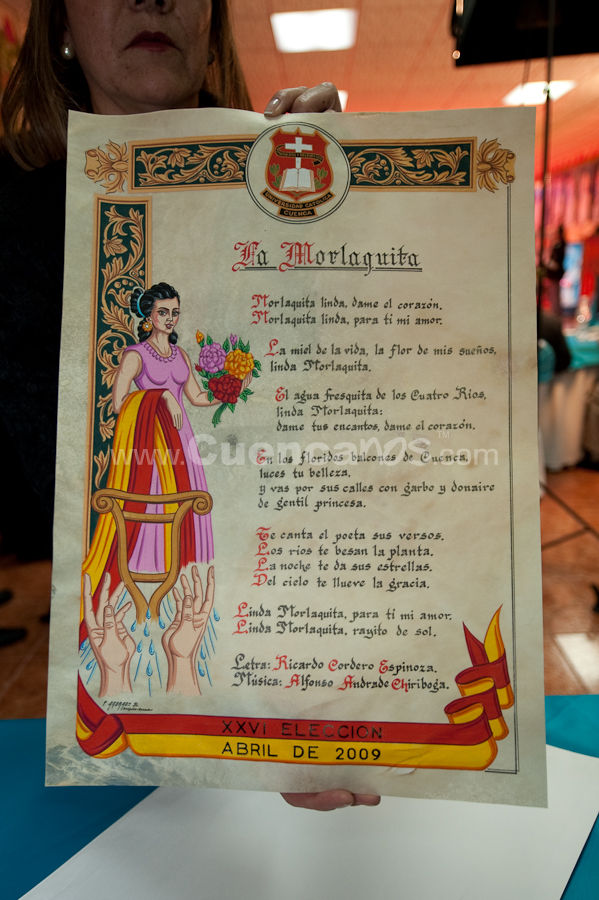 UNIVERSIDAD CATÓLICA
CUENCA
La Morlaquita
Morlaquita linda, dame el corazón.
Morlaquita linda, para ti mi amor.
La miel de la vida, la flor de mis sueños,
linda Morlaquita.
El agua fresquita de los Cuatro Ríos,
linda Morlaquita:
dame tus encantos, dame el corazón.
www.Cuencanos.com
TM
En los floridos balcones de Cuenca,
luces tu belleza,
y vas por sus calles con garbo y donaire
de gentil princesa.
Te canta el poeta sus versos.
Los ríos te besan la planta.
La noche te da sus estrellas.
Del cielo te llueve la gracia.
Linda Morlaquita, para ti mi amor.
Linda Morlaquita, rayito de sol.
Letra: Ricardo Cordero Espinoza.
Música: Alfonso Andrade Chiriboga.
XXVI ELECCION
ABRIL DE 2009